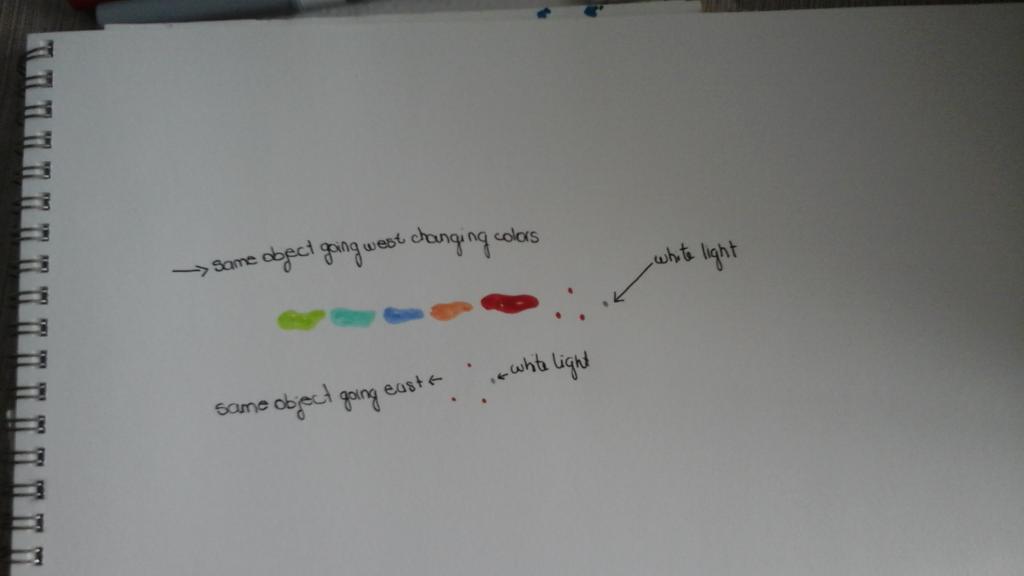 → same object going west changing colors
white light
same object going east ←
← white light